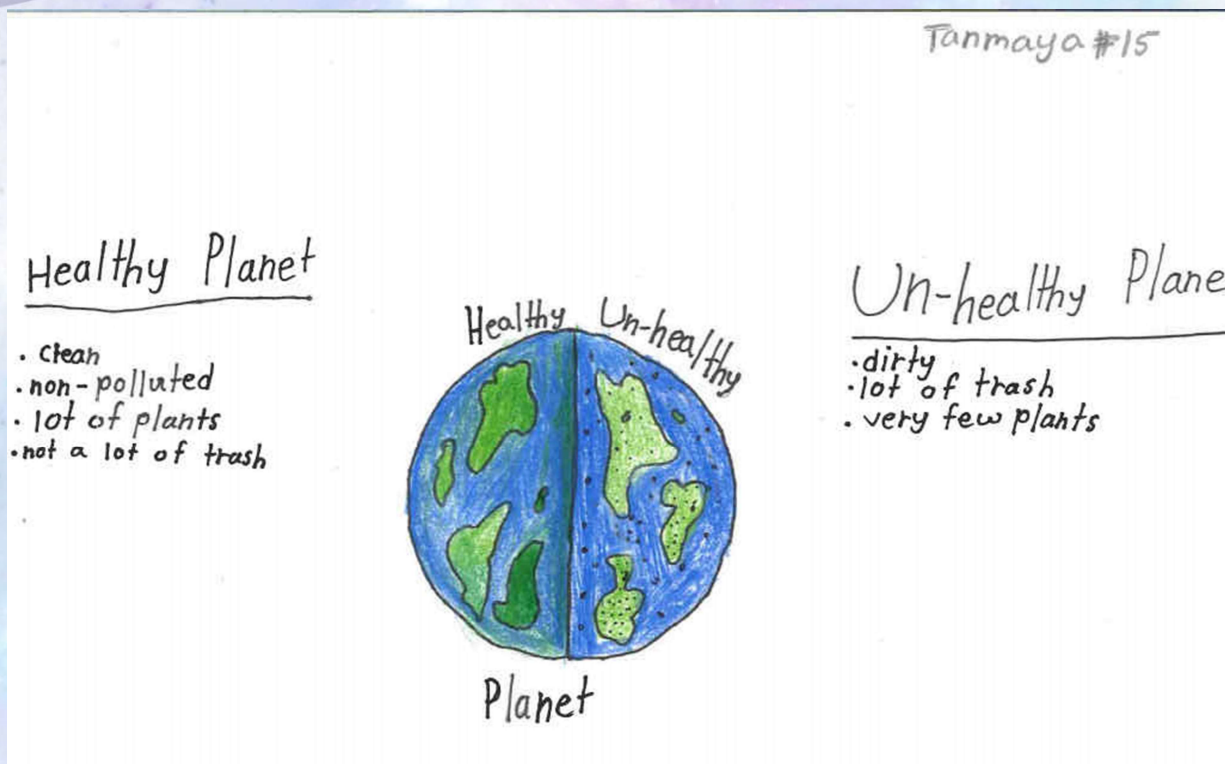 Tanmaya #15
Healthy Planet
. clean
. non-polluted
. lot of plants
. not a lot of trash
Healthy Un-healthy
Planet
Un-healthy Plane
. dirty
. lot of trash
. very few plants